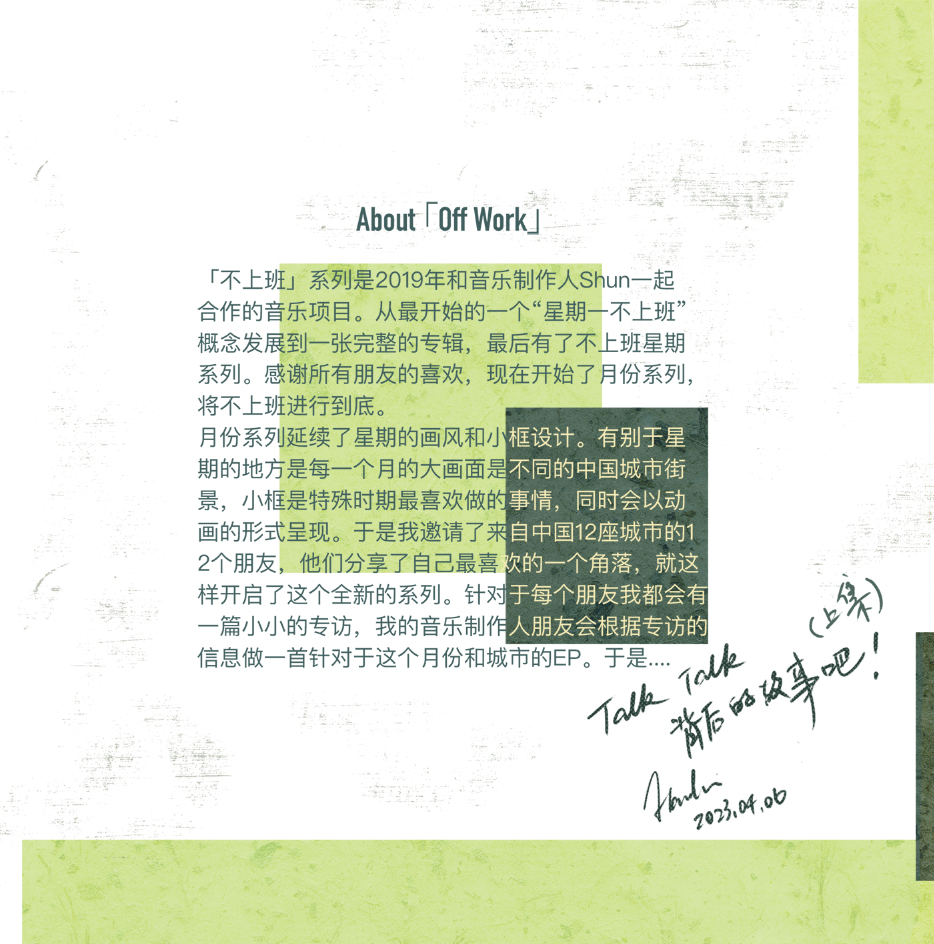 About「Off Work」
「不上班」系列是2019年和音乐制作人Shun一起
合作的音乐项目。从最开始的一个“星期一不上班”
概念发展到一张完整的专辑，最后有了不上班星期
系列。感谢所有朋友的喜欢，现在开始了月份系列，
将不上班进行到底。
月份系列延续了星期的画风和小框设计。有别于星
期的地方是每一个月的大画面是不同的中国城市街
景，小框是特殊时期最喜欢做的事情，同时会以动
画的形式呈现。于是我邀请了来自中国12座城市的1
2个朋友，他们分享了自己最喜欢的一个角落，就这
样开启了这个全新的系列。针对于每个朋友我都会有
一篇小小的专访，我的音乐制作人朋友会根据专访的
信息做一首针对于这个月份和城市的EP。于是....
(上集)
Talk Talk
背后的故事吧！
2023.04.06